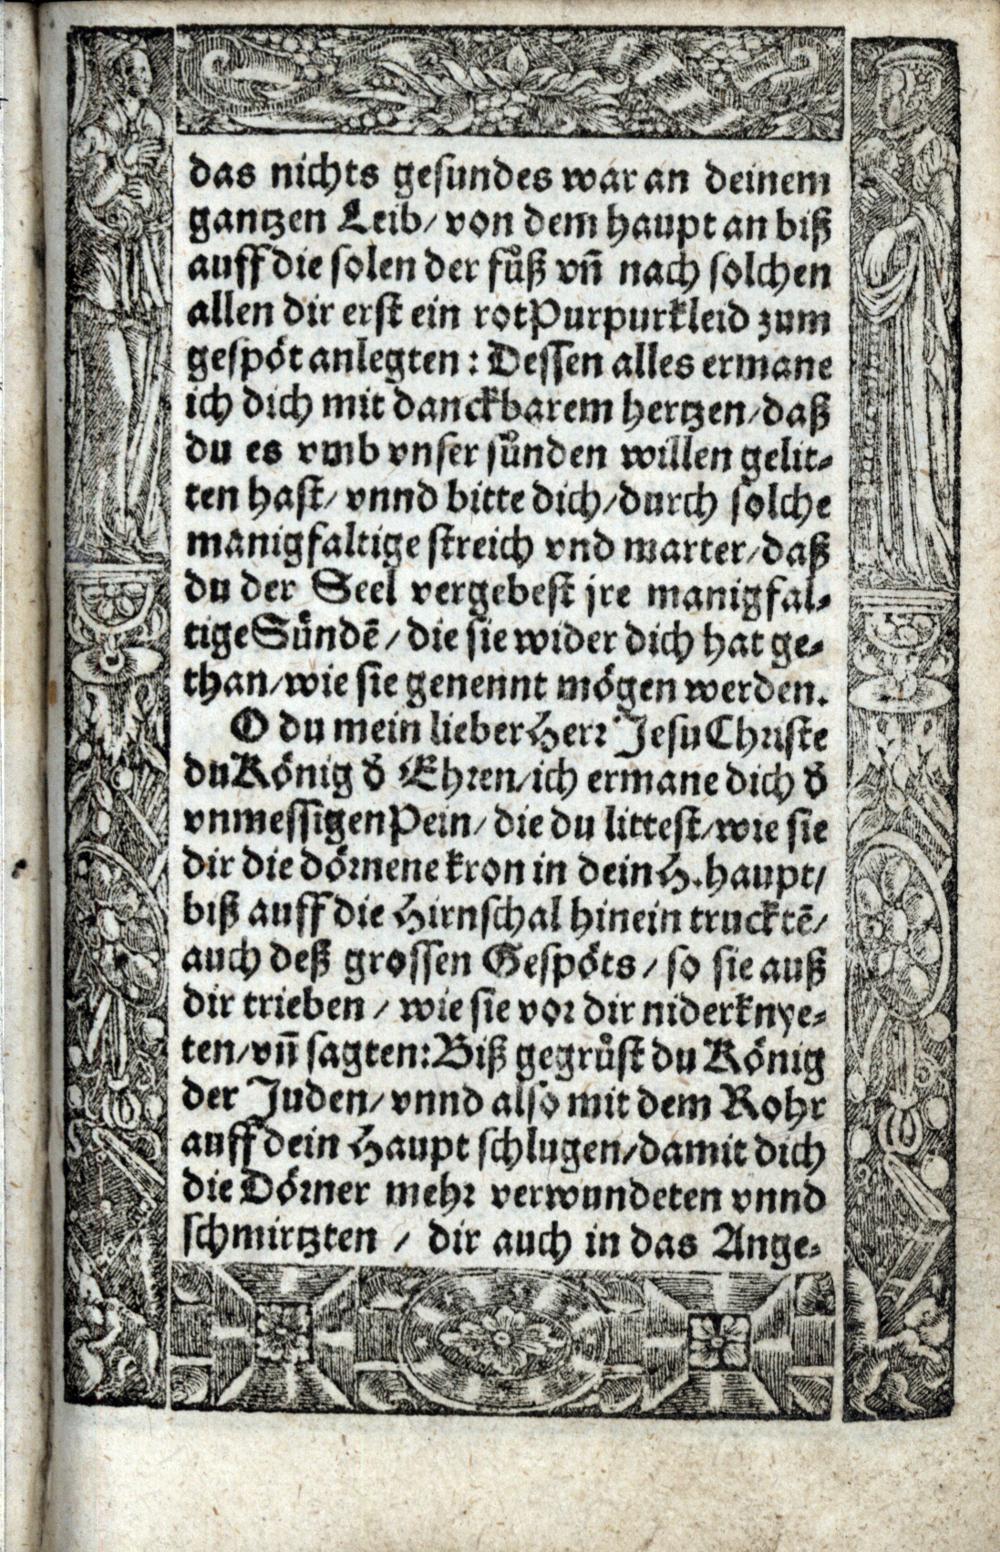 das nichts gesundes war an deinem
gantzen Leib/ von dem haupt an biß
auff die solen der fuͤß vñ nach solchen
allen dir erst ein rot Purpurkleid zum
gespoͤt anlegten: Dessen alles ermane
ich dich mit danckbarem hertzen/daß
du es vmb vnser suͤnden willen gelit-
ten hast/ vnnd bitte dich/durch solche
manigfaltige streich vnd marter/daß
du der Seel vergebest jre manigfal-
tige Suͤndẽ/ die sie wider dich hat ge-
than/wie sie genennt moͤgen werden.
O du mein lieber Herr Jesu Christe
du Koͤnig ð Ehren/ich ermane dich ð
vnmessigen Pein/ die du littest/wie sie
dir die doͤrnene kron in dein H. haupt/
biß auff die Hirnschal hinein trucktẽ/
auch deß grossen Gespoͤts/ so sie auß
dir trieben/ wie sie vor dir niderknye-
ten/vñ sagten: Biß gegruͤst du Koͤnig
der Juden/ vnnd also mit dem Rohr
auff dein Haupt schlugen/damit dich
die Doͤrner mehr verwundeten vnnd
schmirtzten/ dir auch in das Ange-